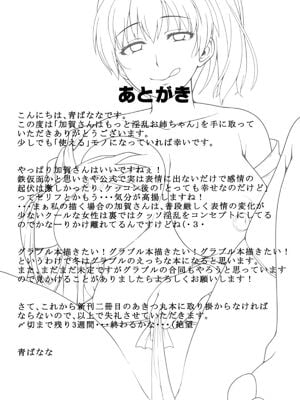 あとがき
こんにちは、青ばななです。
この度は「加賀さんはもっと淫乱お姉ちゃん」を手に取って
いただきありがとうございます。
少しでも「使える」モノになっていれば幸いです。
やっぱり加賀さんはいいですねぇ!
鉄仮面かと思いきや公式で実は表情に出ないだけで感情の
起伏は激しかったり、ケッコン後の「とっても幸せなのだけど」
ってセリフとかもう・・・気分が高揚しますね!
・・・まぁ私の描く場合の加賀さんは、普段厳しく表情の変化が
少ないクールな女性は裏ではクッソ淫乱をコンセプトにしてる
のでかなーりかけ離れてるんですけどね(・3・
グラブル本描きたい!グラブル本描きたい!グラブル本描きたい!
というわけで冬はグラブルのえっちな本になると思います。
また、まだまだ未定ですがグラブルの合同もやろうと思っています
ので見かけることがありましたらよろしくお願いします!
さて、これから新刊二冊目のあきつ丸本に取り掛からなければ
ならないので、以上で失礼させていただきます。
〆切まで残り3週間・・・終わるかな・・・(絶望
青ばなな